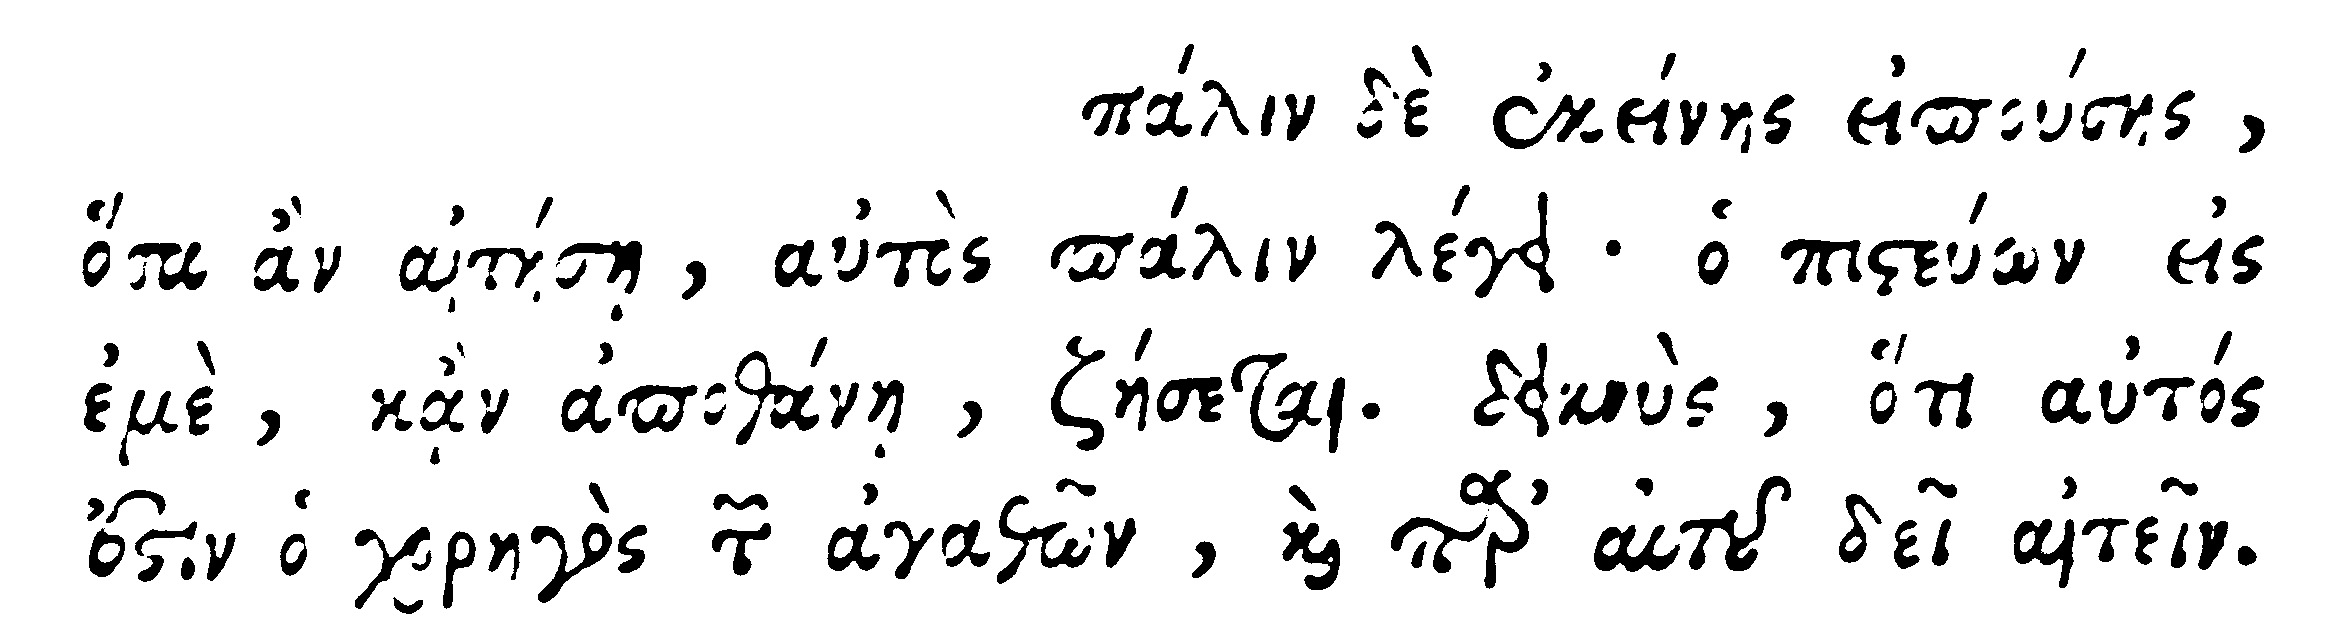 πάλιν δὲ ἐκείνης εἰπούσης,
ὅσα ἂν αἰτήσῃ, αὐτὸς πάλιν λέγει· ὁ πιστεύων εἰς
ἐμὲ, κἂν ἀποθάνῃ, ζήσεται. δεικνὺς, ὅτι αὐτός
ἐστιν ὁ χορηγὸς τῶν ἀγαθῶν, καὶ παρ' αὐτοῦ δεῖ αἰτεῖν.